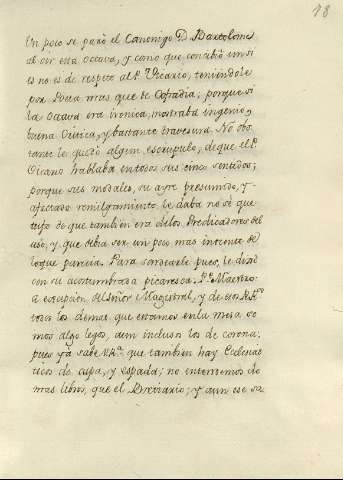 18
Un poco se paró el Canonigo D. Bartolome
al oir esta octava, y como que concibió un si
es no es de respeto al P. Vicario, teniendole
por Poeta mas que de Cofadia; porque si
la Octava era ironica, mostraba ingenio,
buena Critica, y bastante travesura. No obs-
tante le quedó algun escrupulo, de que el P.
Vicario hablaba en todos sus cinco sentidos;
porque sus modales, su ayre presumido, y
afectado remilgamiento, le daba no sé que
tufo de que tambien era de los Predicadores del
uso, y que debia ser un poco mas inocente de
lo que parecia. Para sondearle pues, le dixo
con su acostumbrada picaresca. P. Maestro:
a excepcion del Señor Magistral, y de
todos los demas que estamos en la mesa so-
mos algo legos, aun inclusos los de corona;
pues ya sabe V.R.ma que tambien hay Eclesias-
ticos de capa, y espada; no entendemos de
mas libros, que el Breviario; y aun ese sa-